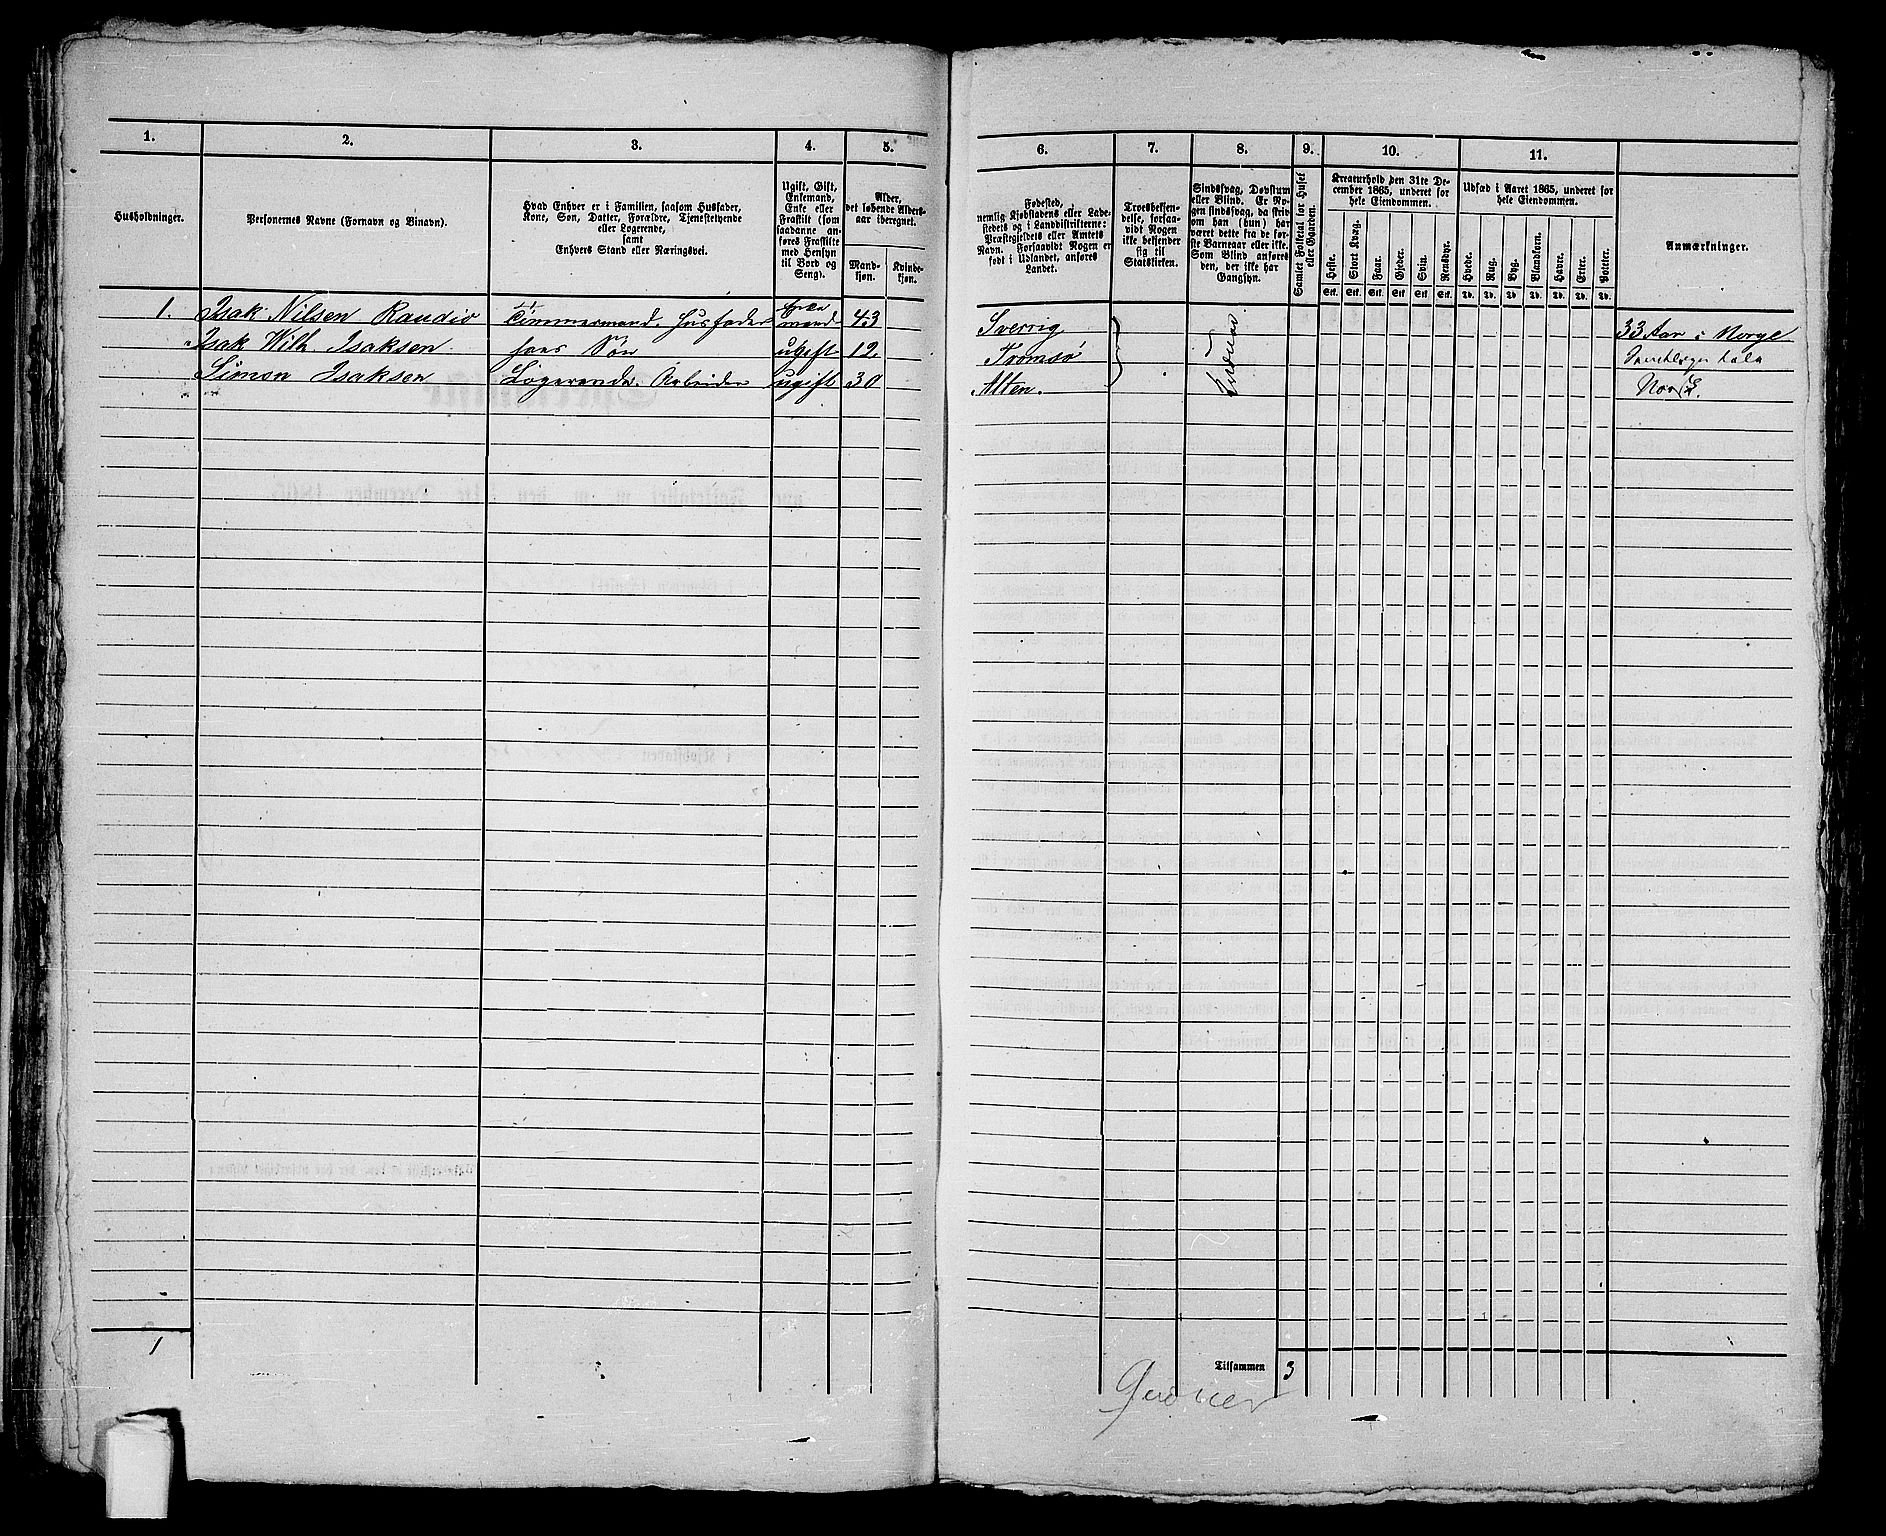 1. 2. 3. 4. 5.
Husholdninger.
Personernes Navne (Fornavn og Binavn).
Hvad Enhver er i Familien, saasom Husfader,
Kone, Søn, Datter, Forældre, Tjenestetyende
eller Logerende,
samt
Enhvers Stand eller Næringsvei.
Ugift, Gift,
Enkemand,
Enke eller
Fraskilt (som
saadanne an-
føres Fraskilte
med Hensyn
til Bord og
Seng).
Alder,
det løbende Alders-
aar iberegnet.
Mand-
kjøn.
Kvinde-
kjøn.
1. Isak Nilsen Raudio Tømmermand. Husfader Enke 43
mand
Isak Wilh Isaksen hans Søn ugift 12.
Simon Isaksen Logerende. Arbeider ugift 30
1
6. 7. 8. 9. 10. 11.
Fødested,
nemlig Kjøbstadens eller Lade-
stedets og i Landdistrikterne:
Præstegjeldets eller Amtets
Navn. Forsaavidt Nogen er
født i Udlandet, anføres
Landet.
Troesbekjen-
delse, forsaa-
vidt Nogen
ikke bekjender
sig til
Statskirken.
Sindssvag, Døvstum
eller Blind. Er No-
gen sindssvag, da skri-
ves om han (hun) har
været dette fra de før-
ste Barneaar eller ikke.
Som Blind anføres
den, der ikke har
Gangsyn.
Samlet Folketal for Huset
eller Gaarden.
Kreaturhold den 31te De-
cember 1865, underet for
hele Eiendommen.
Heste.
Stort Kvæg.
Faar.
Gjeder.
Svin.
Rensdyr.
Stk. Stk. Stk. Stk. Stk. Stk.
Udsæd i Aaret 1865, underet for
hele Eiendommen.
Hvede.
Rug.
Byg.
Blandkorn.
Havre.
Erter.
Poteter.
Td. Td. Td. Td. Td. Td. Td.
Anmærkninger.
Sverrig 33 Aar i Norge
Tromsø tala
Alten. Norsk.
Tilsammen 3